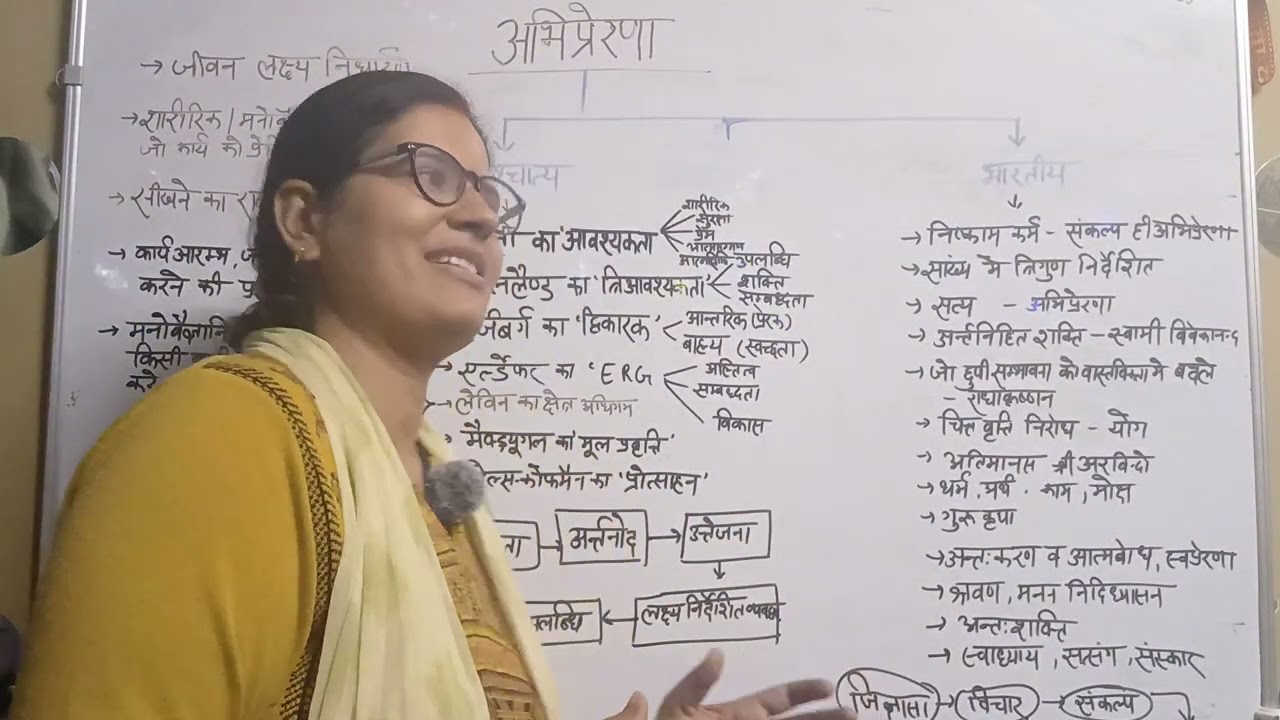 अभिप्रेरणा
→ जीवन लक्ष्य निर्धारण
→ शारीरिक / मनोवै
जो कार्य को प्रे
→ सीखने का
→ कार्य आरम्भ,
करने की
→ मनोवैज्ञानि
किसी
श्चात्य
का 'आवश्यकता
शारीरिक
सुरक्षा
प्रेम
नलैण्ड का 'त्रिआवश्यकता'
उपलब्धि
शक्ति
सम्बद्धता
र्जबर्ग का 'द्विकारक'
आन्तरिक (प्रेरक)
बाह्य (स्वच्छता)
→ एल्डेफर का 'ERG
अस्तित्व
सम्बद्धता
विकास
→ लेविन का क्षेत्र अधिगम
मैक्डूगल का 'मूल प्रवृत्ति'
ल्स-कॉफमैन का 'प्रोत्साहन'
ता → अर्न्तनोद → उत्तेजना
लब्धि ← लक्ष्य निर्देशित व्यवहार
भारतीय
→ निष्काम कर्म - संकल्प ही अभिप्रेरणा
→ सांख्य में त्रिगुण निर्देशित
→ सत्य - अभिप्रेरणा
→ अर्न्तनिहित शक्ति - स्वामी विवेकानन्द
→ जो छुपी सम्भावना को वास्तविकता मे बदले
- राधाकृष्णन
→ चित्त वृत्ति निरोध - योग
→ अतिमानस श्री अरविन्दो
→ धर्म, अर्थ, काम, मोक्ष
→ गुरु कृपा
→ अन्तःकरण व आत्मबोध, स्वप्रेरणा
→ श्रवण, मनन निदिध्यासन
→ अन्तःशक्ति
→ स्वाध्याय, सत्संग, संस्कार
जिज्ञासा → विचार → संकल्प